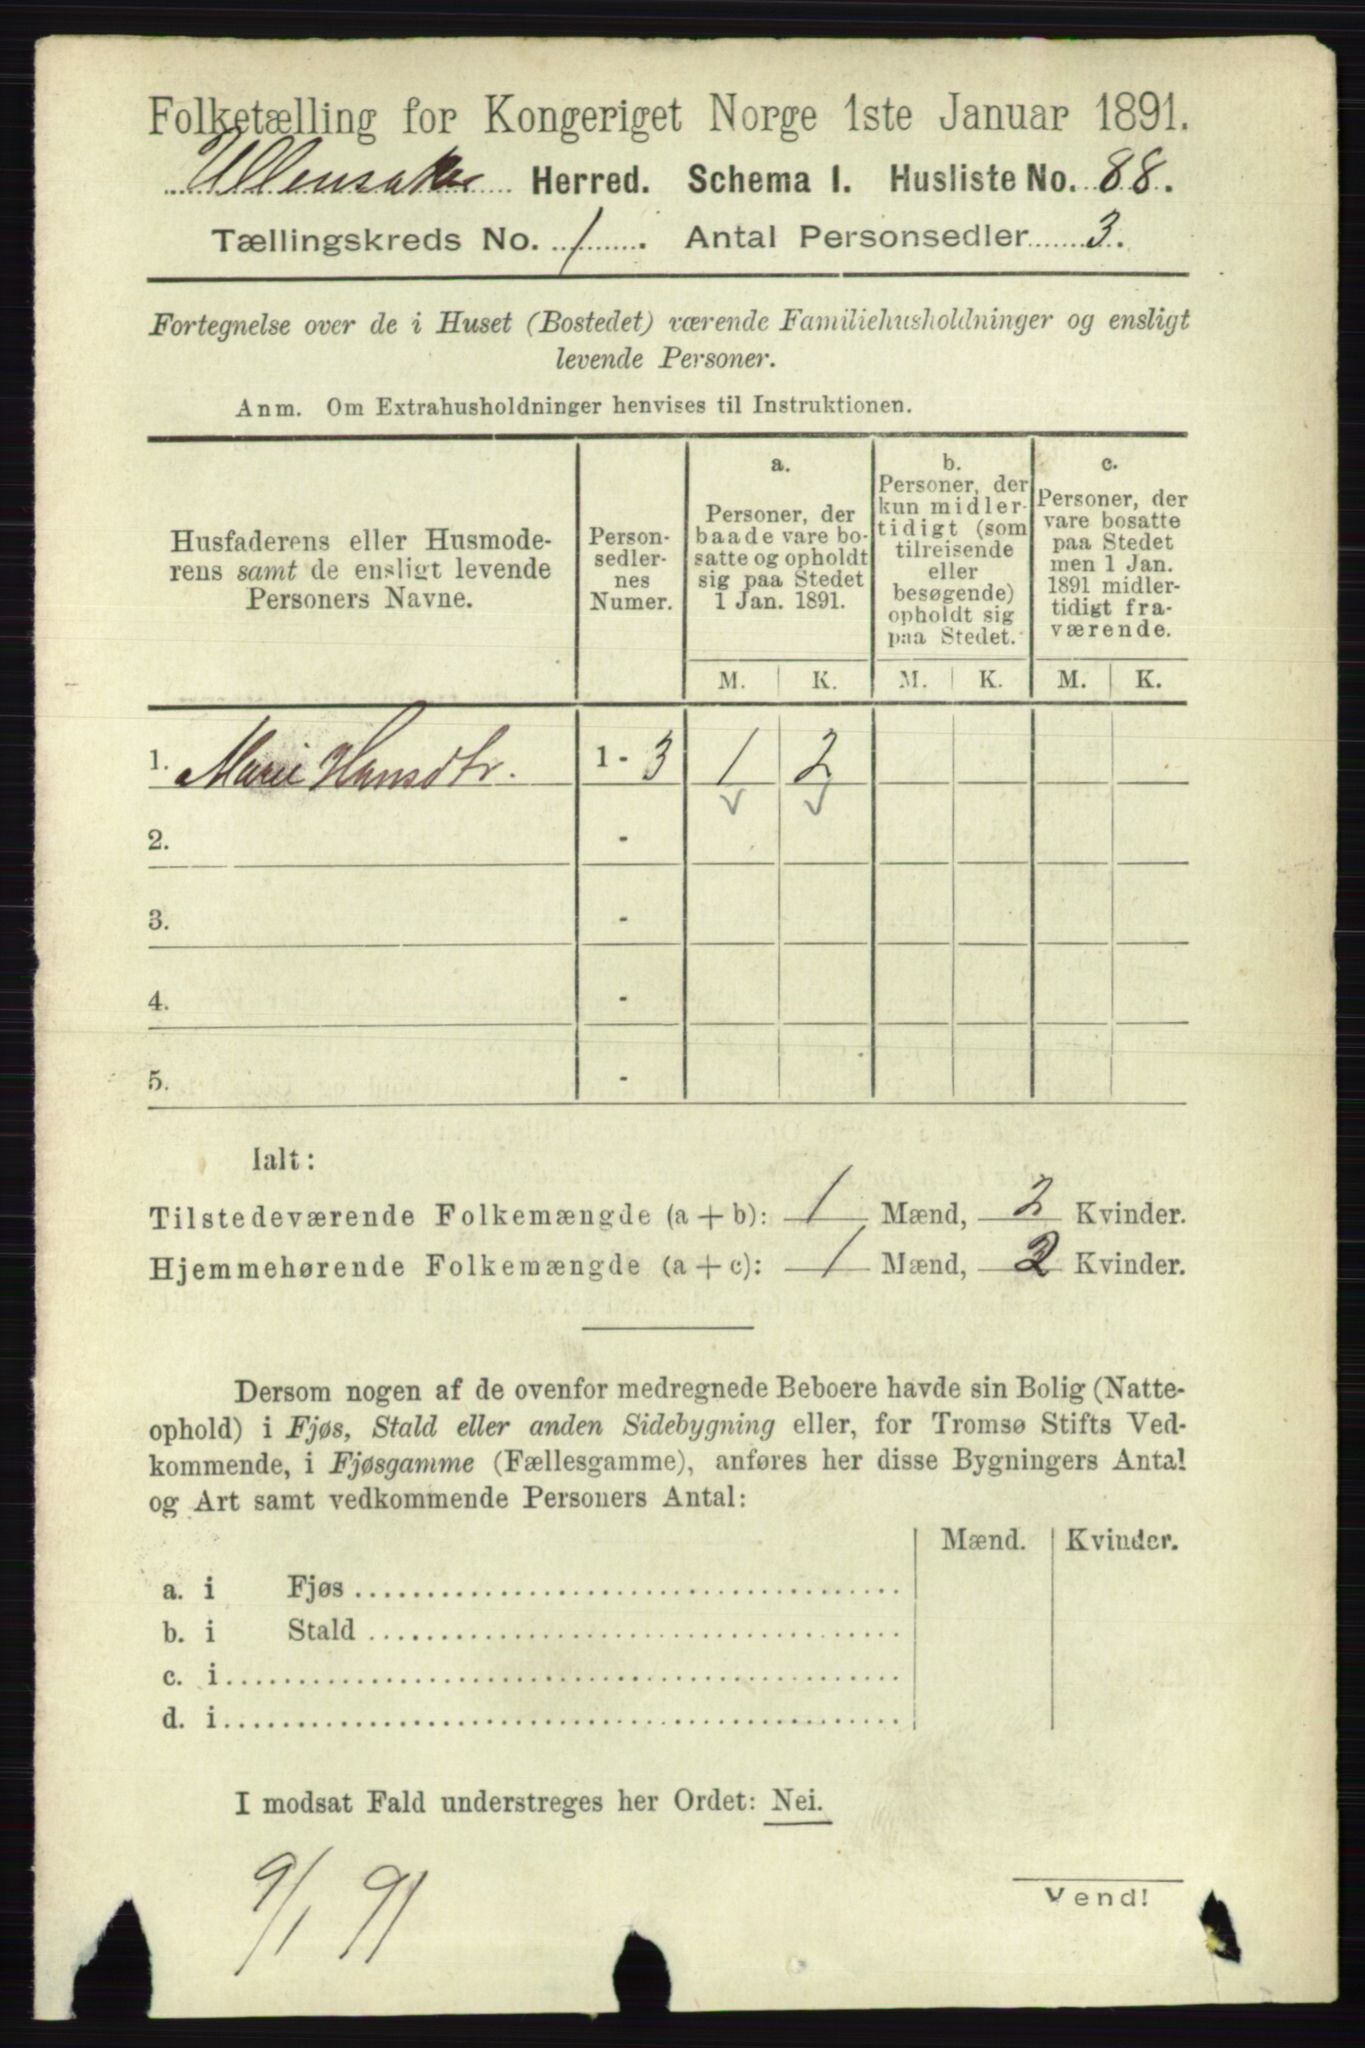 Folketælling for Kongeriget Norge 1ste Januar 1891.
Ullensaker Herred. Schema I. Husliste No. 88.
Tællingskreds No. 1. Antal Personsedler 3.
Fortegnelse over de i Huset (Bostedet) værende Familiehusholdninger og ensligt
levende Personer.
Anm. Om Extrahusholdninger henvises til Instruktionen.
Husfaderens eller Husmode-
rens samt de ensligt levende
Personers Navne.
Person-
sedler-
nes
Numer.
a.
Personer, der
baade vare bo-
satte og opholdt
sig paa Stedet
1 Jan. 1891.
b.
Personer, der
kun midler-
tidigt (som
tilreisende
eller
besøgende)
opholdt sig
paa Stedet.
c.
Personer, der
vare bosatte
paa Stedet
men 1 Jan.
1891 midler-
tidigt fra-
værende.
M. K. M. K. M. K.
1. Marie Hansdtr. 1 - 3 1 2
2. -
3. -
4. -
5. -
Ialt:
Tilstedeværende Folkemængde (a + b): 1 Mænd, 2 Kvinder.
Hjemmehørende Folkemængde (a + c): 1 Mænd, 2 Kvinder.
Dersom nogen af de ovenfor medregnede Beboere havde sin Bolig (Natte-
ophold) i Fjøs, Stald eller anden Sidebygning eller, for Tromsø Stifts Ved-
kommende, i Fjøsgamme (Fællesgamme), anføres her disse Bygningers Antal
og Art samt vedkommende Personers Antal:
Mænd. Kvinder.
a. i Fjøs
b. i Stald
c. i
d. i
I modsat Fald understreges her Ordet: Nei.
9/1 91
Vend!